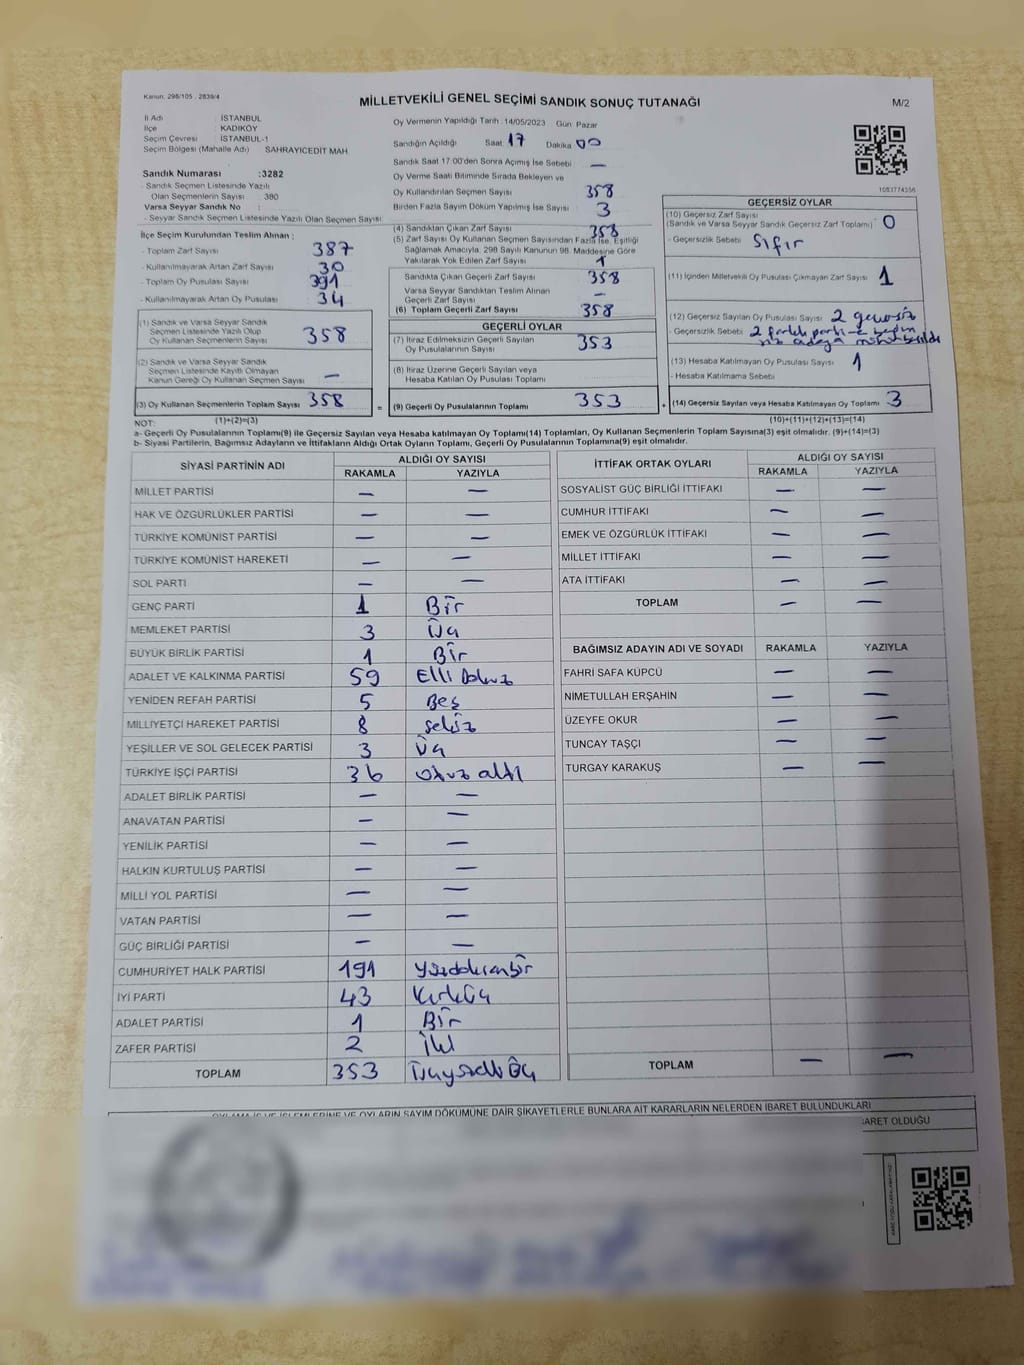 Kanun: 298/105 , 2839/4
MİLLETVEKİLİ GENEL SEÇİMİ SANDIK SONUÇ TUTANAĞI
M/2
İl Adı : İSTANBUL
İlçe : KADIKÖY
Seçim Çevresi : İSTANBUL-1
Seçim Bölgesi (Mahalle Adı) SAHRAYICEDİT MAH.
Sandık Numarası :3282
- Sandık Seçmen Listesinde Yazılı
Olan Seçmenlerin Sayısı : 380
Varsa Seyyar Sandık No :
- Seyyar Sandık Seçmen Listesinde Yazılı Olan Seçmen Sayısı:
Oy Vermenin Yapıldığı Tarih : 14/05/2023 Gün Pazar
Sandığın Açıldığı Saat 17 Dakika 00
Sandık Saat 17:00'den Sonra Açılmış İse Sebebi —
Oy Verme Saati Bitiminde Sırada Bekleyen ve
Oy Kullandırılan Seçmen Sayısı 358
Birden Fazla Sayım Döküm Yapılmış İse Sayısı 3
1083774356
İlçe Seçim Kurulundan Teslim Alınan :
- Toplam Zarf Sayısı 387
- Kullanılmayarak Artan Zarf Sayısı 30
- Toplam Oy Pusulası Sayısı 391
- Kullanılmayarak Artan Oy Pusulası 34
(1) Sandık ve Varsa Seyyar Sandık
Seçmen Listesinde Yazılı Olup
Oy Kullanan Seçmenlerin Sayısı 358
(2) Sandık ve Varsa Seyyar Sandık
Seçmen Listesinde Kayıtlı Olmayan
Kanun Gereği Oy Kullanan Seçmen Sayısı —
(3) Oy Kullanan Seçmenlerin Toplam Sayısı 358
(1)+(2)=(3)
(4) Sandıktan Çıkan Zarf Sayısı 358
(5) Zarf Sayısı Oy Kullanan Seçmen Sayısından Fazla İse, Eşitliği
Sağlamak Amacıyla, 298 Sayılı Kanunun 98. Maddesine Göre
Yakılarak Yok Edilen Zarf Sayısı 1
Sandıkta Çıkan Geçerli Zarf Sayısı 358
Varsa Seyyar Sandıktan Teslim Alınan
Geçerli Zarf Sayısı —
(6) Toplam Geçerli Zarf Sayısı 358
GEÇERLİ OYLAR
(7) İtiraz Edilmeksizin Geçerli Sayılan
Oy Pusulalarının Sayısı 353
(8) İtiraz Üzerine Geçerli Sayılan veya
Hesaba Katılan Oy Pusulası Toplamı
= (9) Geçerli Oy Pusulalarının Toplamı 353
GEÇERSİZ OYLAR
(10) Geçersiz Zarf Sayısı
(Sandık ve Varsa Seyyar Sandık Geçersiz Zarf Toplamı) 0
- Geçersizlik Sebebi : Sıfır
(11) İçinden Milletvekili Oy Pusulası Çıkmayan Zarf Sayısı 1
(12) Geçersiz Sayılan Oy Pusulası Sayısı 2 geçersiz
- Geçersizlik Sebebi 2 farklı
(13) Hesaba Katılmayan Oy Pusulası Sayısı 1
- Hesaba Katılmama Sebebi
+ (14) Geçersiz Sayılan veya Hesaba Katılmayan Oy Toplamı 3
(10)+(11)+(12)+(13)=(14)
NOT:
a- Geçerli Oy Pusulalarının Toplamı(9) ile Geçersiz Sayılan veya Hesaba katılmayan Oy Toplamı(14) Toplamları, Oy Kullanan Seçmenlerin Toplam Sayısına(3) eşit olmalıdır. (9)+(14)=(3)
b- Siyasi Partilerin, Bağımsız Adayların ve İttifakların Aldığı Ortak Oyların Toplamı, Geçerli Oy Pusulalarının Toplamına(9) eşit olmalıdır.
SİYASİ PARTİNİN ADI ALDIĞI OY SAYISI
RAKAMLA YAZIYLA
MİLLET PARTİSİ — —
HAK VE ÖZGÜRLÜKLER PARTİSİ — —
TÜRKİYE KOMÜNİST PARTİSİ — —
TÜRKİYE KOMÜNİST HAREKETİ — —
SOL PARTİ — —
GENÇ PARTİ 1 Bir
MEMLEKET PARTİSİ 3 Üç
BÜYÜK BİRLİK PARTİSİ 1 Bir
ADALET VE KALKINMA PARTİSİ 59 Elli Dokuz
YENİDEN REFAH PARTİSİ 5 Beş
MİLLİYETÇİ HAREKET PARTİSİ 8 sekiz
YEŞİLLER VE SOL GELECEK PARTİSİ 3 Üç
TÜRKİYE İŞÇİ PARTİSİ 36 otuz altı
ADALET BİRLİK PARTİSİ — —
ANAVATAN PARTİSİ — —
YENİLİK PARTİSİ — —
HALKIN KURTULUŞ PARTİSİ — —
MİLLİ YOL PARTİSİ — —
VATAN PARTİSİ — —
GÜÇ BİRLİĞİ PARTİSİ — —
CUMHURİYET HALK PARTİSİ 191 Yüzdoksanbir
İYİ PARTİ 43 Kırküç
ADALET PARTİSİ 1 Bir
ZAFER PARTİSİ 2 İki
TOPLAM 353 Üçyüzelli Üç
İTTİFAK ORTAK OYLARI ALDIĞI OY SAYISI
RAKAMLA YAZIYLA
SOSYALİST GÜÇ BİRLİĞİ İTTİFAKI — —
CUMHUR İTTİFAKI — —
EMEK VE ÖZGÜRLÜK İTTİFAKI — —
MİLLET İTTİFAKI — —
ATA İTTİFAKI — —
TOPLAM — —
BAĞIMSIZ ADAYIN ADI VE SOYADI RAKAMLA YAZIYLA
FAHRİ SAFA KÜPCÜ — —
NİMETULLAH ERŞAHİN — —
ÜZEYFE OKUR — —
TUNCAY TAŞÇI — —
TURGAY KARAKUŞ — —
TOPLAM — —
OYLAMA İŞ VE İŞLEMLERİNE VE OYLARIN SAYIM DÖKÜMÜNE DAİR ŞİKAYETLERLE BUNLARA AİT KARARLARIN NELERDEN İBARET BULUNDUKLARI
OLDUĞU